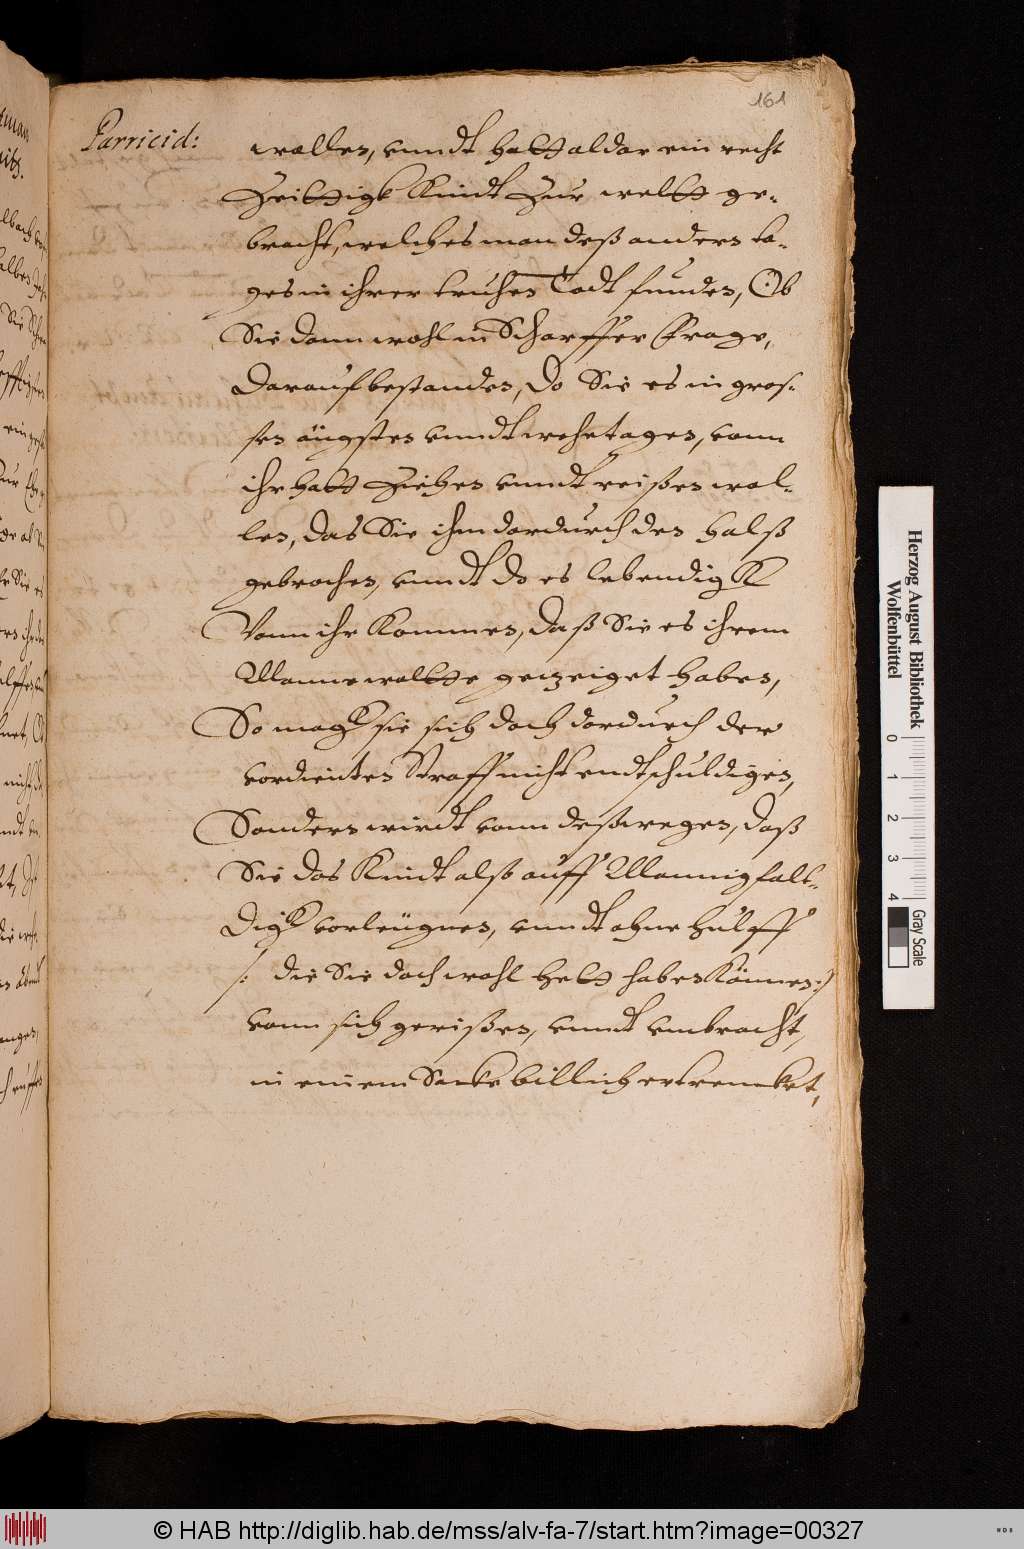 161
Parricid:
wollen, vnndt hatt aldar ein recht
Zeittigk Kindt Zur weltt ge-
bracht, welches man deß andern ta-
ges in ihrer truhen Todt funden, Ob
Sie dann wohl in Scharffer Frage,
darauf bestanden, do Sie es in gros-
sen ängsten vnndt wehetagen, vonn
ihr hatt Ziehen vnndt reißen wol-
len, das Sie ihm dardurch den halß
gebrochen, vnndt do es lebendig
Vonn ihr Kommen, daß Sie es ihrem
Manne woltte gezeiget haben,
So magk sie sich doch dardurch der
vordienten Straff nicht endtschuldigen,
Sondern wirdt vonn deßwegen, daß
Sie das Kindt alß auff Mannigfalt-
digk vorleugnen, vnndt ohne hülff
/: die Sie doch wohl hett haben Können :/
vonn sich gerißen, vnndt vmbracht,
in einem Sacke billich ertrencket,
Herzog August Bibliothek
Wolfenbüttel
0 1 2 3 4
Gray Scale
© HAB http://diglib.hab.de/mss/alv-fa-7/start.htm?image=00327